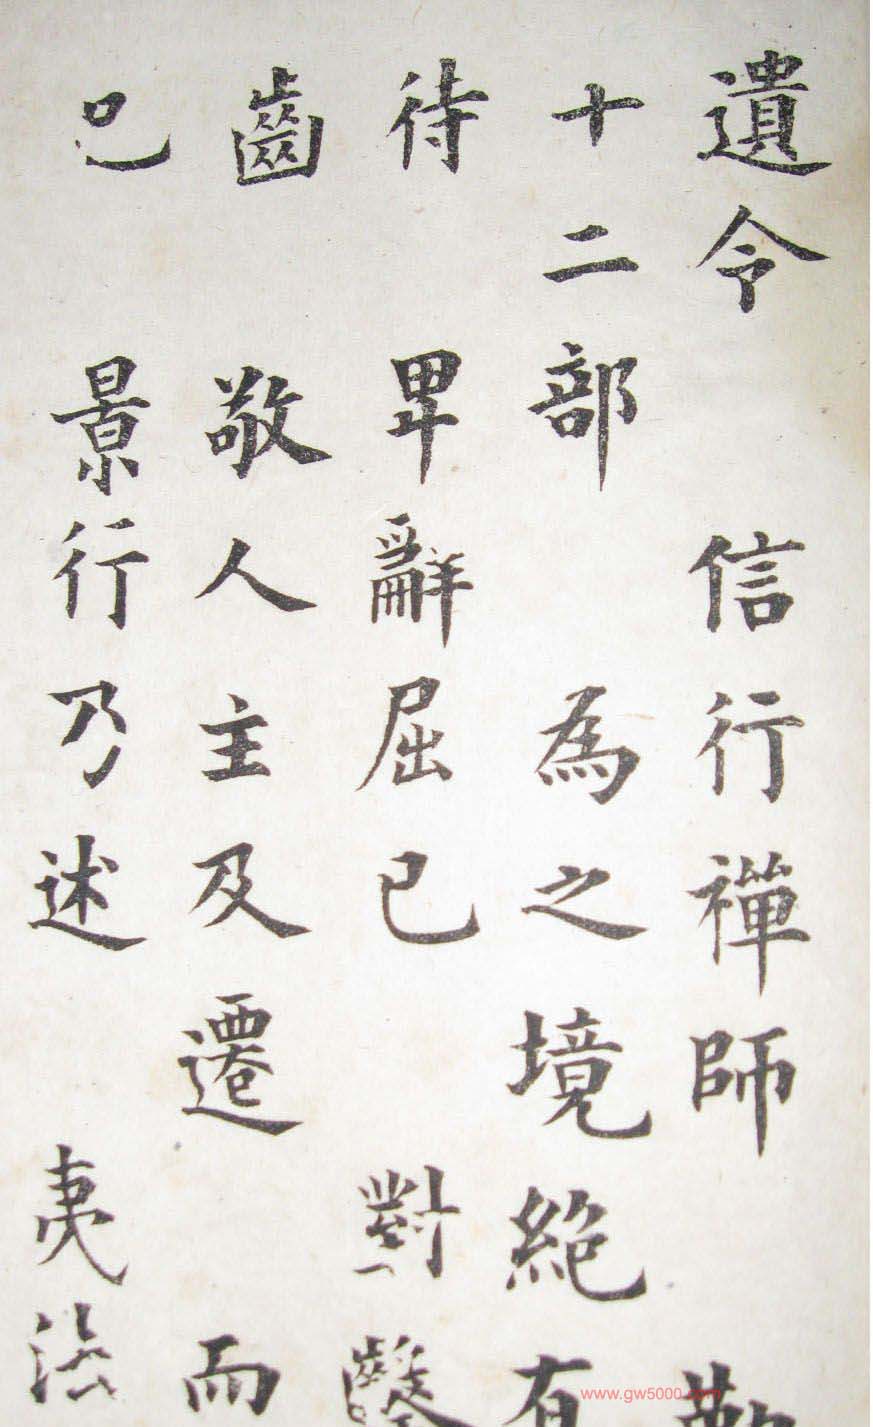 遺令 信行禪師
十二部 為之境絕有
待 畢辭屈已 對
齒 敬人主及遷 而
已 景行乃述 夷法
www.gw5000.com